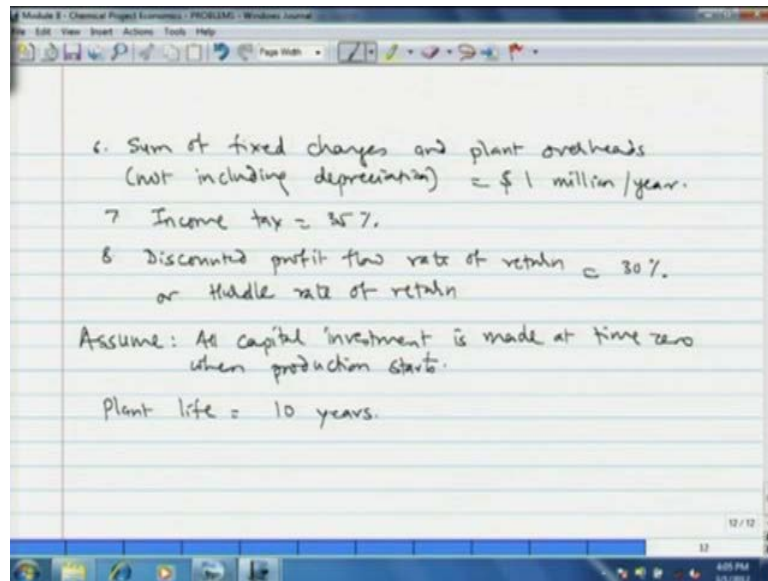 Module 8 - Chemical Project Economics - PROBLEMS - Windows Journal
File Edit View Insert Actions Tools Help
Page Width
6. Sum of fixed charges and plant overheads
(not including depreciation) = $ 1 million/year.
7 Income tax = 35 %.
8 Discounted profit flow rate of return = 30 %.
or Hurdle rate of return
Assume: All capital investment is made at time zero
when production starts.
Plant life = 10 years.
12 / 12
12
4:05 PM